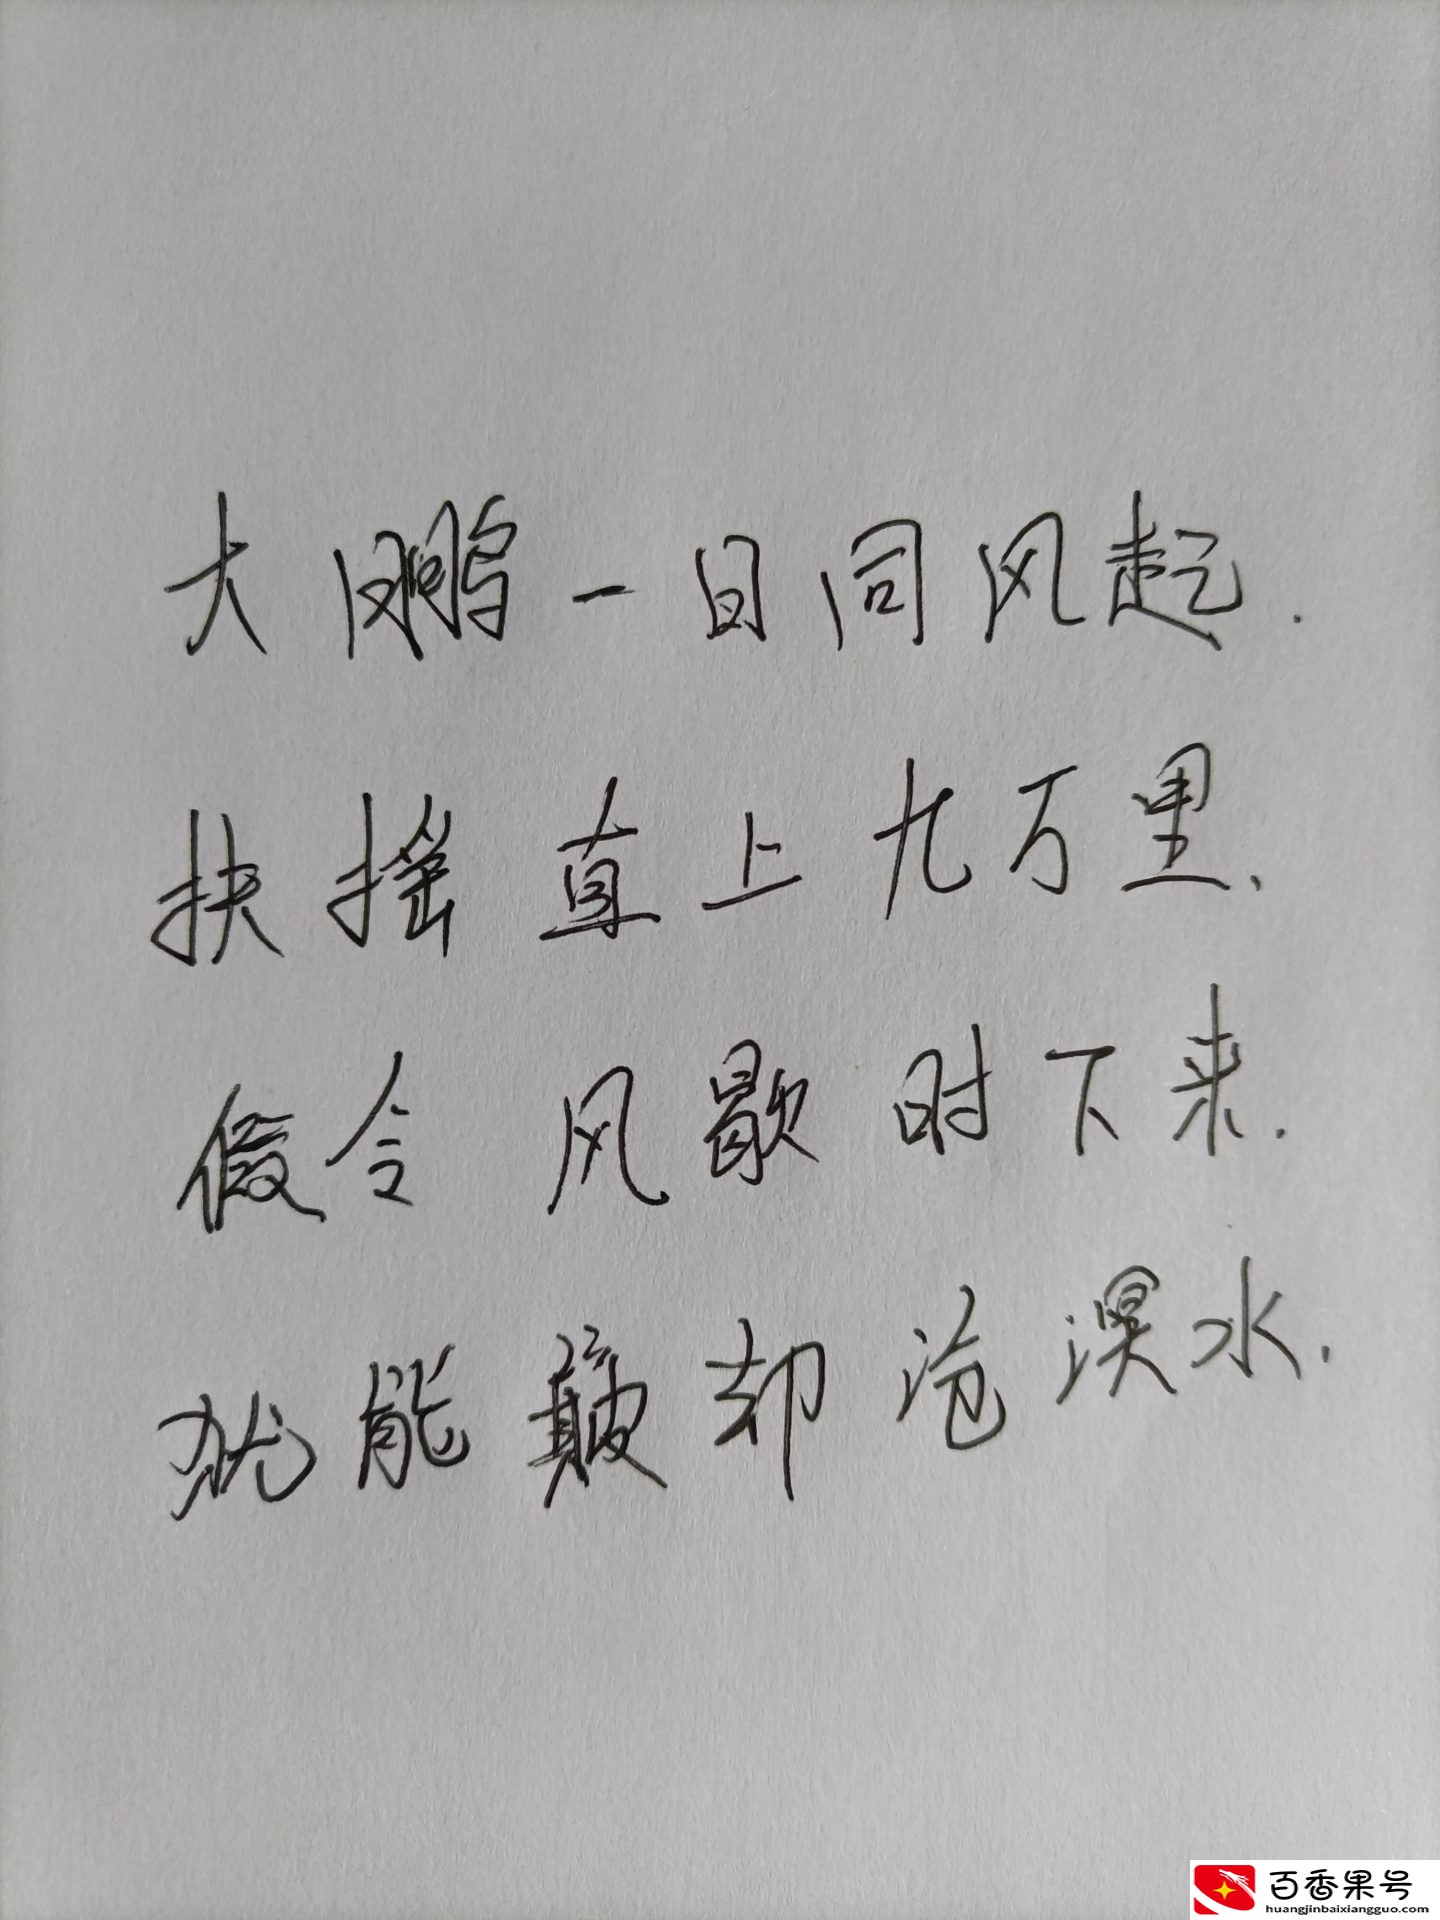 大鹏一日同风起.
扶摇直上九万里.
假令风歇时下来.
犹能簸却沧溟水.
百香果号
huangjinbaixiangguo.com